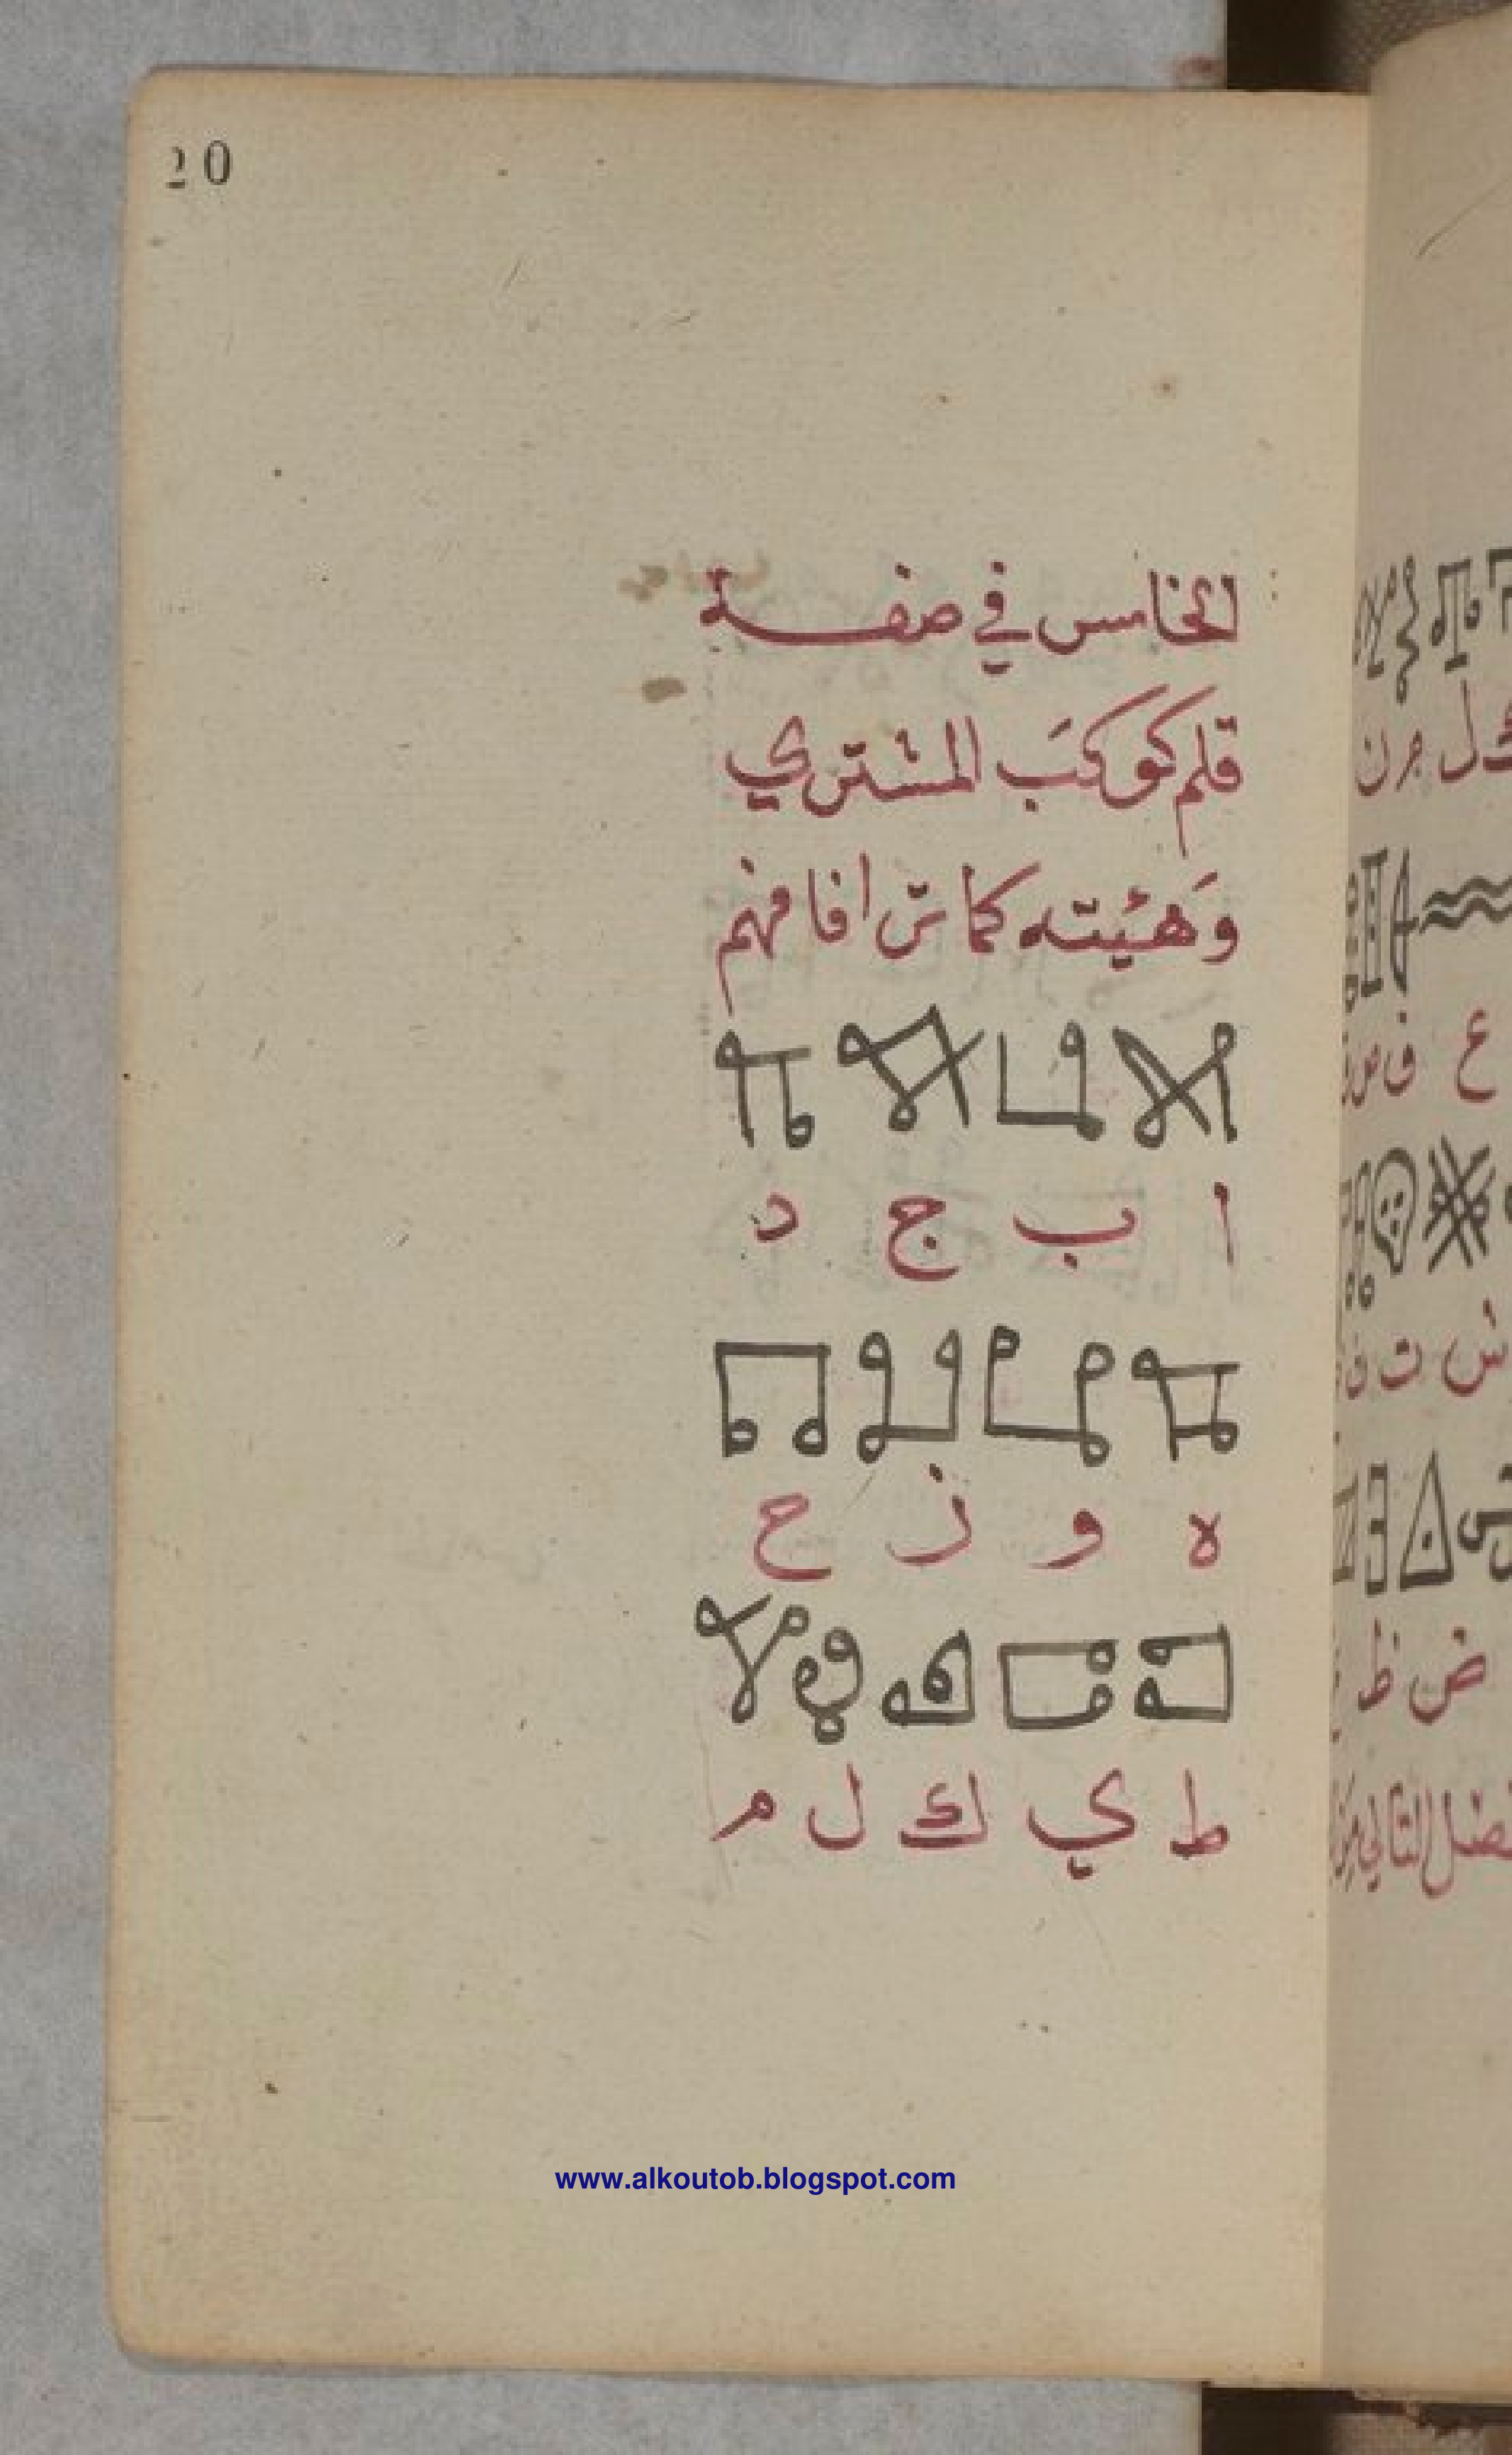 20
الخامس في صفة
قلم كوكب المشتري
وهيئته كما ترا فافهم
ا ب ج د
ه و ز ح
ط ي ك ل م
ل م ن
ع ف ص
ش ت
ض ظ
www.alkoutob.blogspot.com